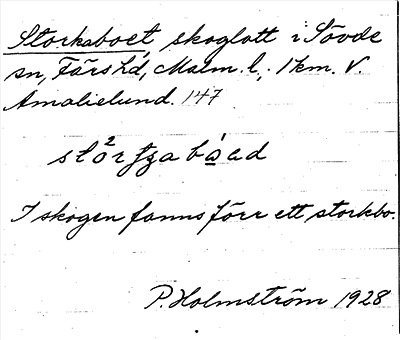 Storkaboet, skoglott i Sövde
sn, Färs hd, Malm. l., 1 km. V.
Amalielund. 147
I skogen fanns förr ett storkbo.
P. Holmström 1928